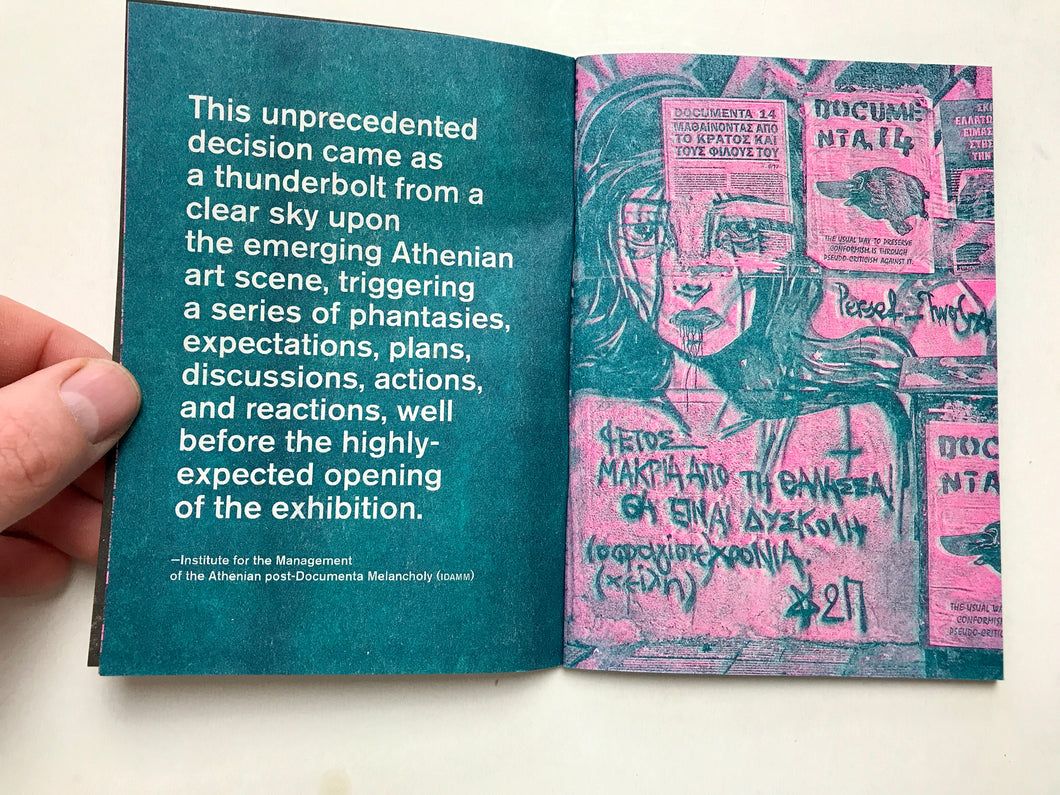 This unprecedented
decision came as
a thunderbolt from a
clear sky upon
the emerging Athenian
art scene, triggering
a series of phantasies,
expectations, plans,
discussions, actions,
and reactions, well
before the highly-
expected opening
of the exhibition.
—Institute for the Management
of the Athenian post-Documenta Melancholy (IDAMM)
DOCUMENTA 14
ΜΑΘΑΙΝΟΝΤΑΣ ΑΠΟ
ΤΟ ΚΡΑΤΟΣ ΚΑΙ
ΤΟΥΣ ΦΙΛΟΥΣ ΤΟΥ
DOCUME
NTA 14
THE USUAL WAY TO PRESERVE
CONFORMISM IS THROUGH
PSEUDO-CRITICISM AGAINST IT.
ΣΚΙ
ΕΛΛΑΤΩ
ΕΙΜΑΣ
ΣΤΗΣ
ΤΗΝ
ΦΕΤΟΣ
ΜΑΚΡΙΑ ΑΠΟ ΤΗ ΘΑΛΑΣΣΑ
ΘΑ ΕΙΝΑΙ ΔΥΣΚΟΛΗ
ΧΡΟΝΙΑ.
2Π
DOC
NTA
THE USUAL WA
CONFORMIS
PSEUDO-CRITIC